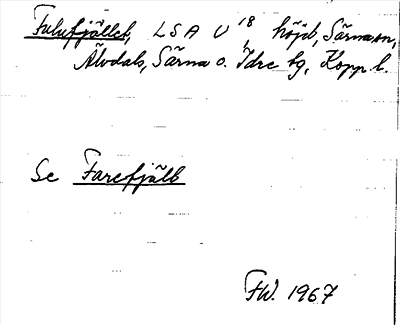 Fulufjället, LSA U 18, höjd, Särna sn,
Älvdals, Särna o. Idre tg, Kopp. l.
Se Farefjäll
FW. 1967